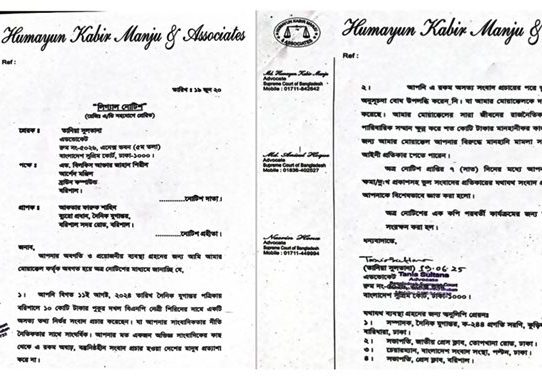 Humayun Kabir Manju & Associates
Ref :
তারিখ : ১৯ জুন ২০
"লিগাল নোটিশ"
(রেজিঃ এ/ডি সহযোগে প্রেরিত)
প্রেরক : তানিয়া সুলতানা
এডভোকেট
রুম নং-৫০২৬, এনেক্স ভবন (৫ম তলা)
বাংলাদেশ সুপ্রিম কোর্ট, ঢাকা-১০০০।
পক্ষে : এড. বিলকিস আক্তার জাহান শিরীন
আর্শেদ মঞ্জিল
ব্রাউন কম্পাউন্ড
বরিশাল।
..........নোটিশ দাতা।
প্রাপক : আকতার ফারুক শাহিন
ব্যুরো প্রধান, দৈনিক যুগান্তর,
বরিশাল সদর রোড, বরিশাল।
..........নোটিশ গ্রহীতা।
জনাব,
আপনার অবগতি ও প্রয়োজনীয় ব্যবস্থা গ্রহনের জন্য আমি আমার
মোয়াক্কেল কর্তৃক অবগত হয়ে অত্র নোটিশের মাধ্যমে জানাচ্ছি যে,
১। আপনি বিগত ১১ই আগষ্ট, ২০২৪ তারিখ দৈনিক যুগান্তর পত্রিকায়
বরিশালে ১০ কোটি টাকার পুকুর দখল বিএনপি নেত্রী শিরিনের নামে একটি
অসত্য তথ্য নির্ভর সংবাদ প্রচার করেছেন। যা আপনার সাংবাদিকতার নীতি
নৈতিকতার সাথে সাংঘর্ষিক। আপনার মত একজন অভিজ্ঞ সাংবাদিকের কাছ
থেকে এ রকম অযথা, বস্তুনিষ্ঠহীন সংবাদ প্রচার হওয়া দেশের মানুষ প্রত্যাশা
করে না।
HUMAYUN KABIR MANJU
& ASSOCIATES
Md. Humayun Kabir Manju
Advocate
Supreme Court of Bangladesh
Mobile : 01711-842642
Advocate
Supreme Court of Bangladesh
Mobile : 01836-402527
Advocate
Supreme Court of Bangladesh
Mobile : 01711-449994
Humayun Kabir Manju &
Ref :
২। আপনি এ রকম অসত্য সংবাদ প্রচারের পরে
অনুসূচনা বোধ উপলব্ধি করেন নি। যা আমার মোয়াক্কেলকে
করেছে। আমার মোয়াক্কেলের সারা জীবনের রাজনৈতিক
পারিবারিক সম্মান ক্ষুন্ন করে শত কোটি টাকার মানহানীকর
জন্য আমার মোয়াক্কেল আপনার বিরুদ্ধে মানহানি মামলা
আইনী প্রতিকার পেতে পারেন।
অত্র নোটিশ প্রাপ্তির ৭ (সাত) দিনের মধ্যে
ক্ষমা/দুঃখ প্রকাশসহ ভুল সংবাদের প্রতিকারের যথাযথ
আপনাকে বিশেষভাবে জ্ঞাত করা হলো।
অত্র নোটিশের এক কপি পরবর্তী কার্যক্রমের জন্য
সংরক্ষন করা হল।
ধন্যবাদান্তে,
Tania Sultana
(তানিয়া সুলতানা) 19.06.25
এডভোকেট Tania Sultana
Advocate
বাংলাদেশ সুপ্রিম কোর্ট, ঢাকা-১০০০।
যথাযথ ব্যবস্থা গ্রহনের জন্য অনুলিপি প্রেরন:
১। সম্পাদক, দৈনিক যুগান্তর, ক-২৪৪ প্রগতি সরণি, কুড়িল
বারিধারা, ঢাকা।
২। সভাপতি, জাতীয় প্রেস ক্লাব, তোপখানা রোড, ঢাকা।
৩। চেয়ারম্যান, বাংলাদেশ সংবাদ সংস্থা, পল্টন, ঢাকা।
৪। সভাপতি, প্রেস ক্লাব, বরিশাল।